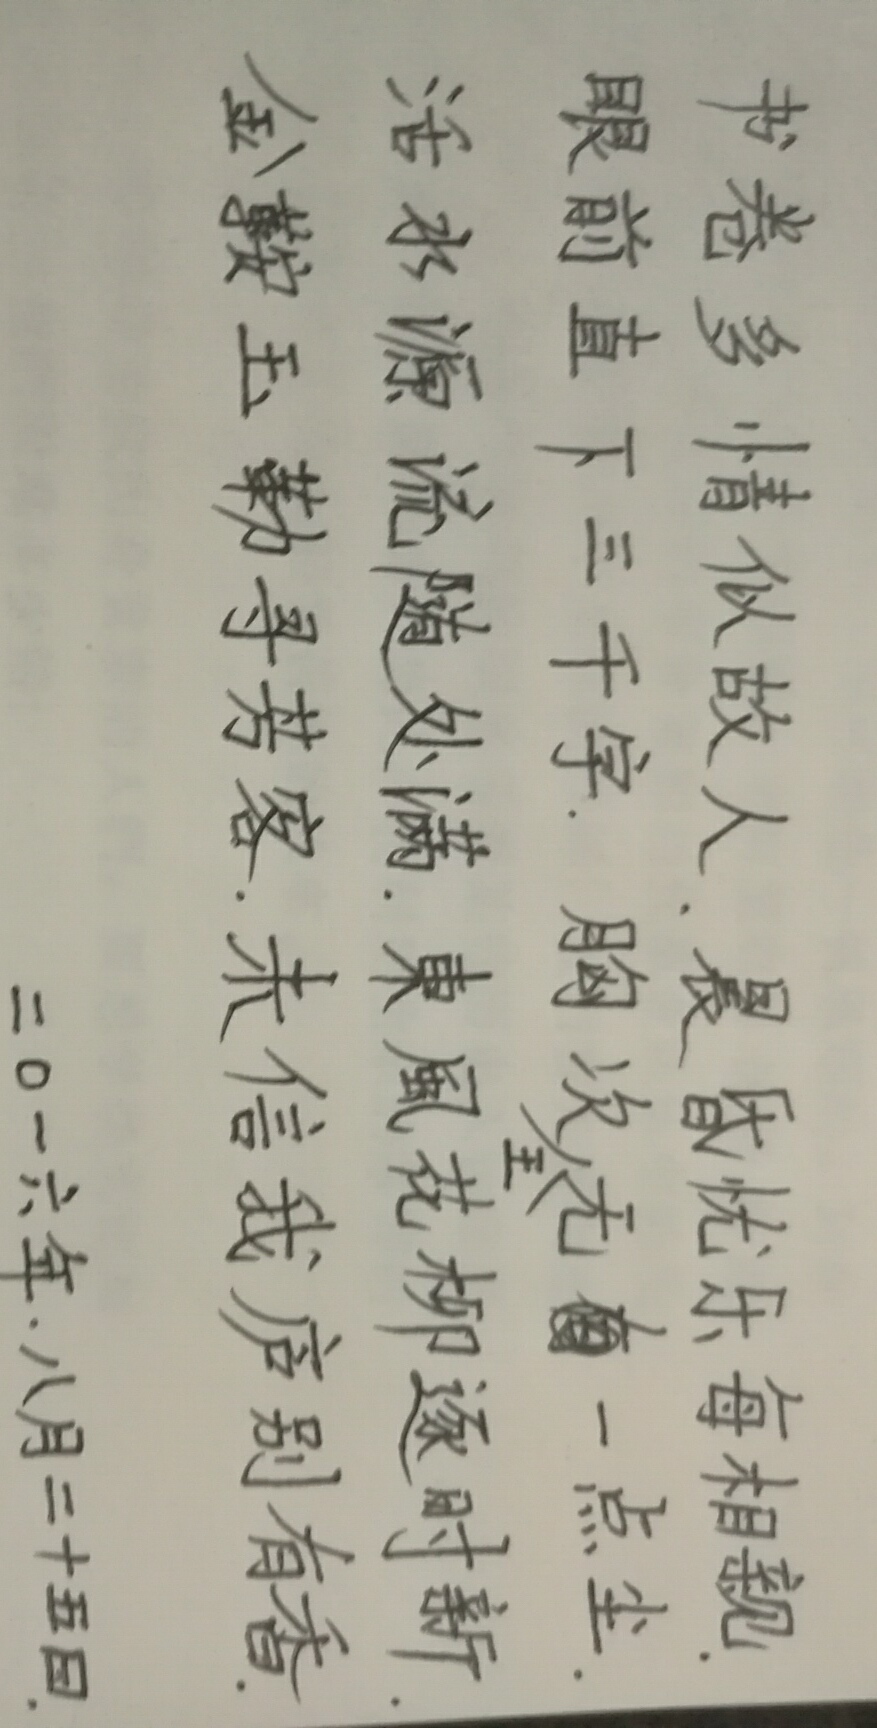 书卷多情似故人.晨昏忧乐每相亲.
眼前直下三千字.胸次全无一点尘.
活水源流随处满.東風花柳逐时新.
金鞍玉勒寻芳客.未信我庐别有香.
二0一六年.八月二十五日.